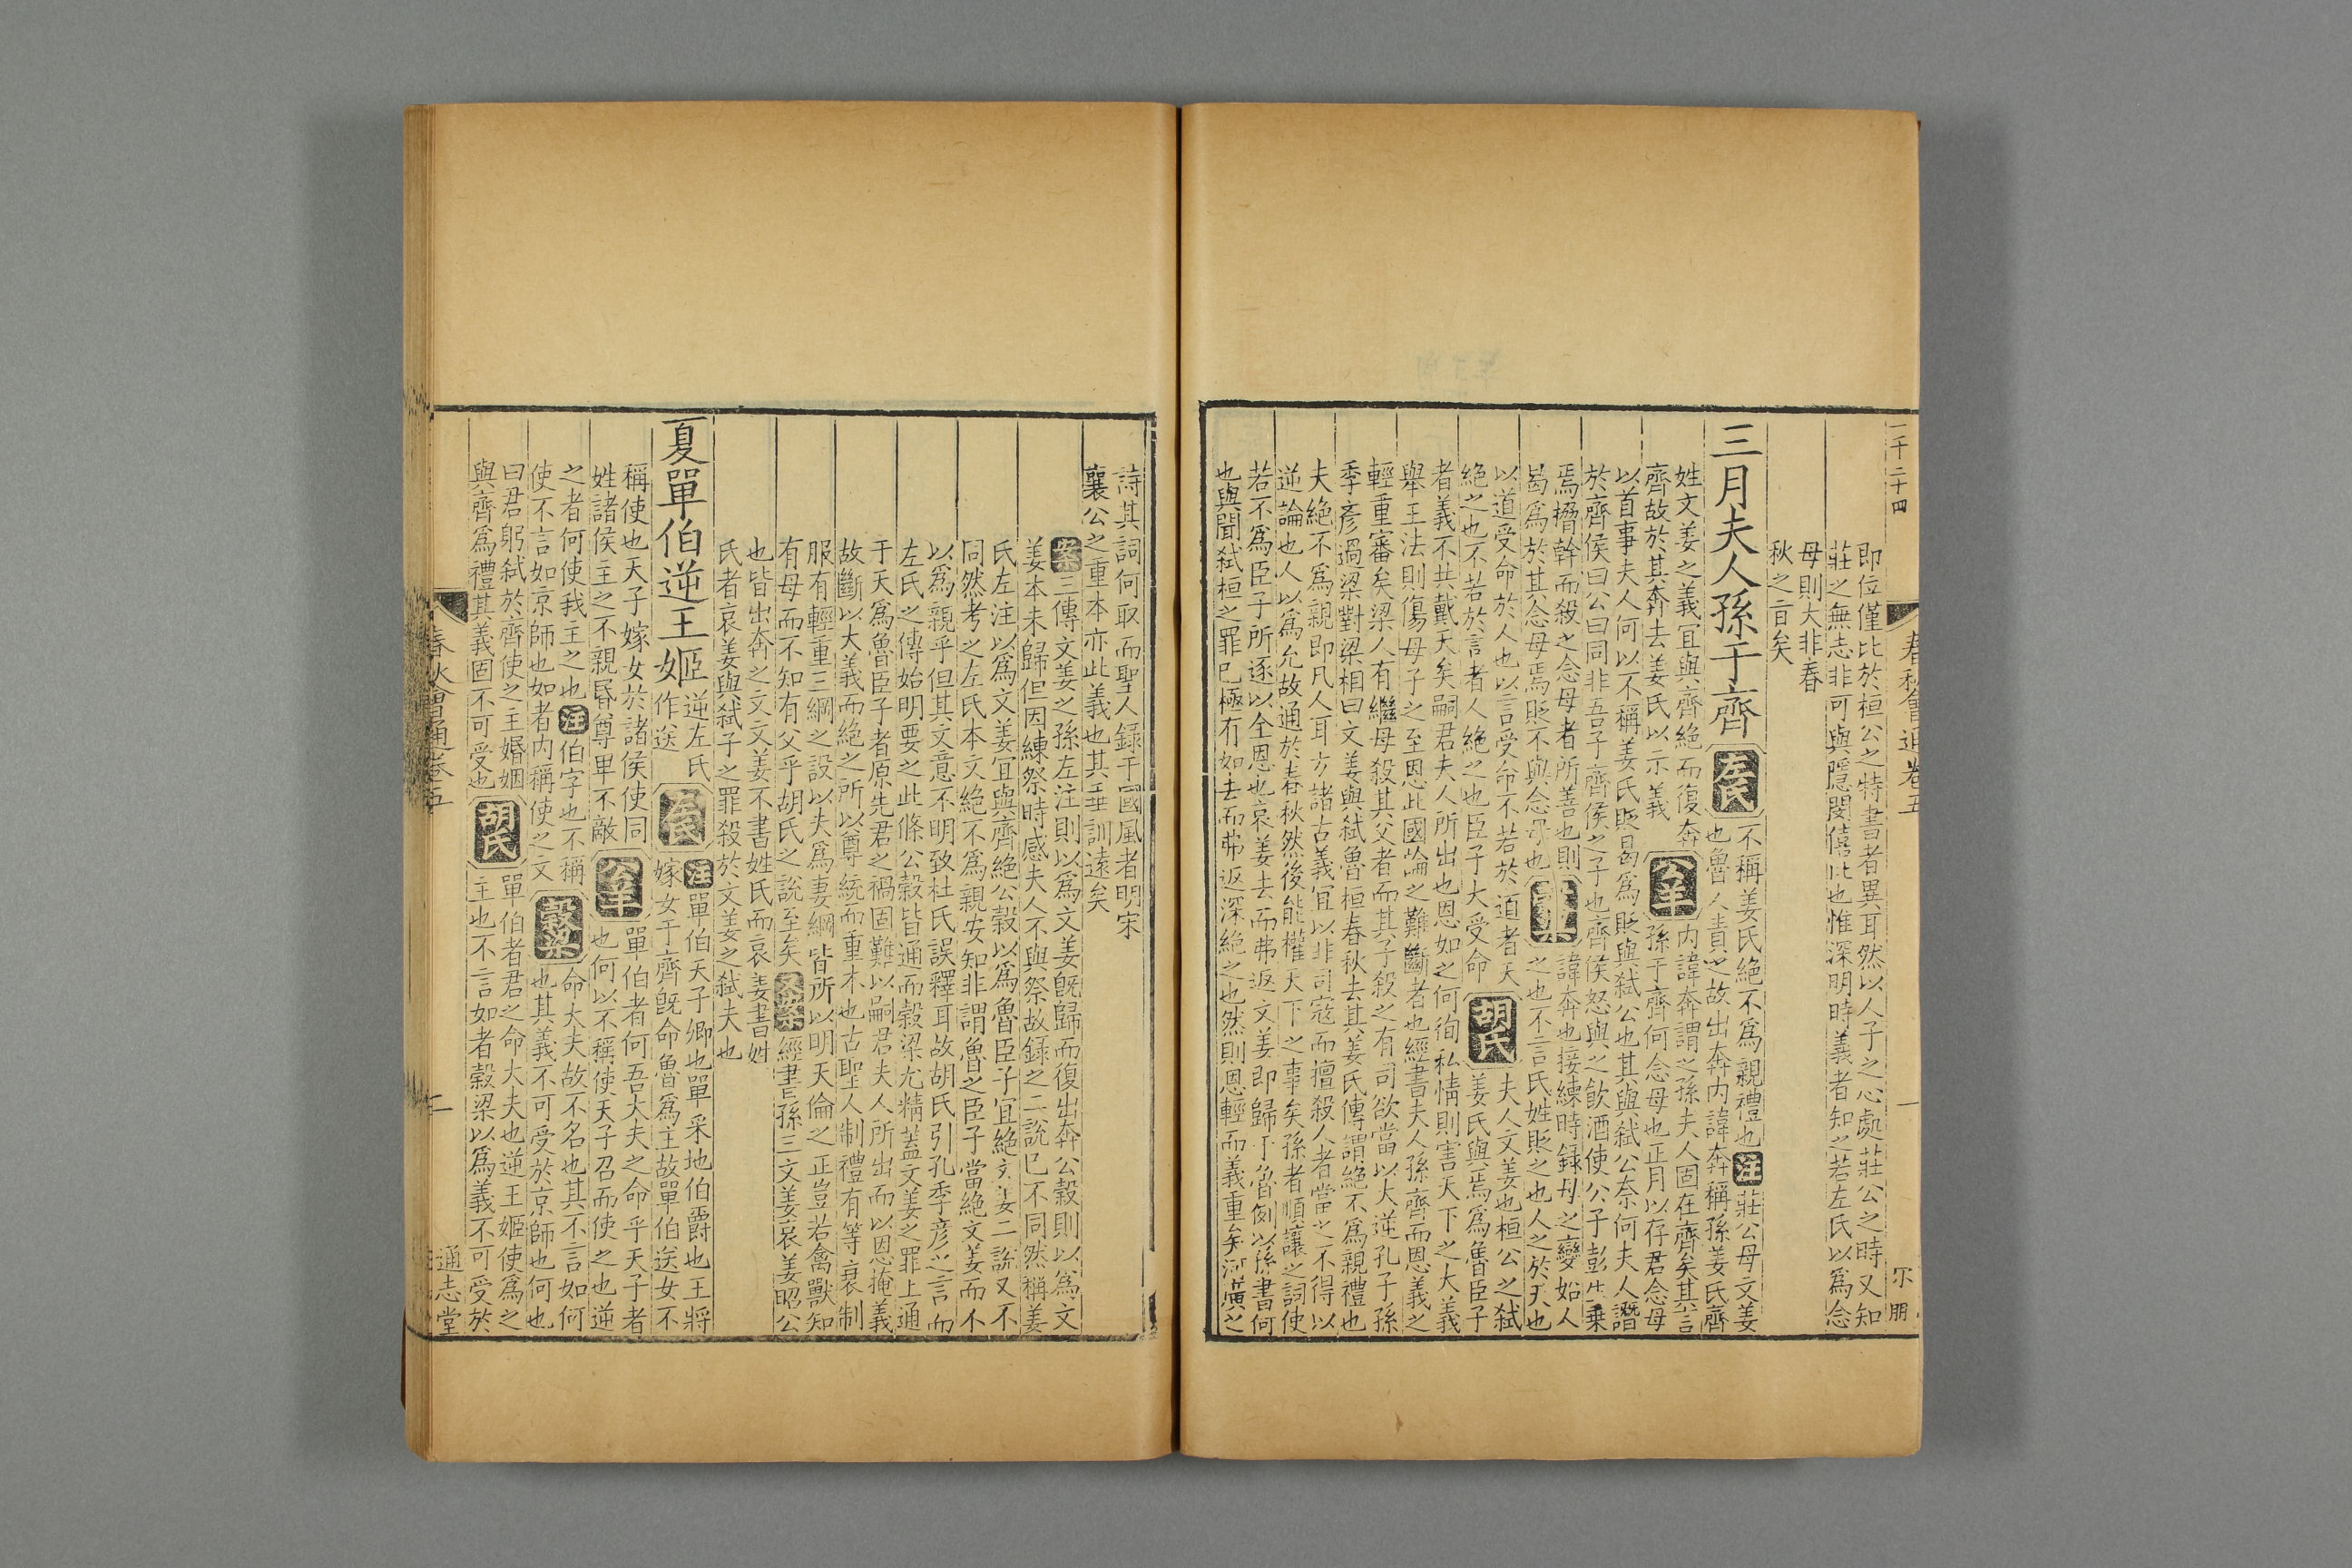 一千二十四
春秋會通卷五
一
即位僅比於桓公之特書者異耳然以人子之心處莊公之時又知
莊之無志非可與隱閔僖比也惟深明時義者知之若左氏以爲念
母則大非春
秋之旨矣
三月夫人孫于齊
左氏
不稱姜氏絕不爲親禮也注莊公母文姜
也魯人責之故出奔内諱奔稱孫姜氏齊
姓文姜之義宜與齊絕而復奔
齊故於其奔去姜氏以示義
公羊
内諱奔謂之孫夫人固在齊矣其言
孫于齊何念母也正月以存君念母
以首事夫人何以不稱姜氏貶曷爲貶與弒公也其與弒公奈何夫人譖
於齊侯曰公曰同非吾子齊侯之子也齊侯怒與之飲酒使公子彭生乗
焉搚幹而殺之念母者所善也則
曷爲於其念母焉貶不與念母也
諱奔也接練時録母之變始人
之也不言氏姓貶之也人之於天也
以道受命於人也以言受命不若於道者天
絕之也不若於言者人絕之也臣子大受命
胡氏
夫人文姜也桓公之弒
姜氏與焉爲魯臣子
者義不共戴天矣嗣君夫人所出也恩如之何徇私情則害天下之大義
舉王法則傷母子之至恩此國論之難斷者也經書夫人孫齊而恩義之
輕重審矣梁人有繼母殺其父者而其子殺之有司欲當以大逆孔子孫
季彥過梁對梁相曰文姜與弒魯桓春秋去其姜氏傳謂絕不爲親禮也
夫絕不爲親即凡人耳方諸古義宜以非司寇而擅殺人者當之不得以
逆論也人以爲允故通於春秋然後能權天下之事矣孫者順讓之詞使
若不爲臣子所逐以全恩也哀姜去而弗返文姜即歸于魯例以孫書何
也與聞弒桓之罪已極有如去而弗返深絕之也然則恩輕而義重矣河廣之
詩其詞何取而聖人録于國風者明宋
襄公之重本亦此義也其垂訓遠矣
案三傳文姜之孫左注則以爲文姜旣歸而復出奔公穀則以爲文
姜本未歸但因練祭時感夫人不與祭故録之二說已不同然稱姜
氏左注以爲文姜宜與齊絕公穀以爲魯臣子宜絕文姜二說又不
同然考之左氏本文絕不爲親安知非謂魯之臣子當絕文姜而不
以爲親乎但其文意不明致杜氏誤釋耳故胡氏引孔季彥之言而
左氏之傳始明要之此條公穀皆通而穀梁尤精蓋文姜之罪上通
于天爲魯臣子者原先君之禍固難以嗣君夫人所出而以恩掩義
故斷以大義而絕之所以尊統而重本也古聖人制禮有等衰制
服有輕重三綱之設以夫爲妻綱皆所以明天倫之正豈若禽獸知
有母而不知有父乎胡氏之說至矣又案經書孫三文姜哀姜昭公
也皆出奔之文文姜不書姓氏而哀姜書姓
氏者哀姜與弒子之罪殺於文姜之弒夫也
夏單伯逆王姬
逆左氏
作送
左氏
注單伯天子卿也單采地伯爵也王將
嫁女于齊旣命魯爲主故單伯送女不
稱使也天子嫁女於諸侯使同
姓諸侯主之不親昏尊卑不敵
公羊
單伯者何吾大夫之命乎天子者
也何以不稱使天子召而使之也逆
之者何使我主之也注伯字也不稱
使不言如京師也如者内稱使之文
穀梁
命大夫故不名也其不言如何
也其義不可受於京師也何也
曰君躬弒於齊使之主婚姻
與齊爲禮其義固不可受也
胡氏
單伯者君之命大夫也逆王姬使爲之
主也不言如者穀梁以爲義不可受於
春秋會通卷五
二
通志堂